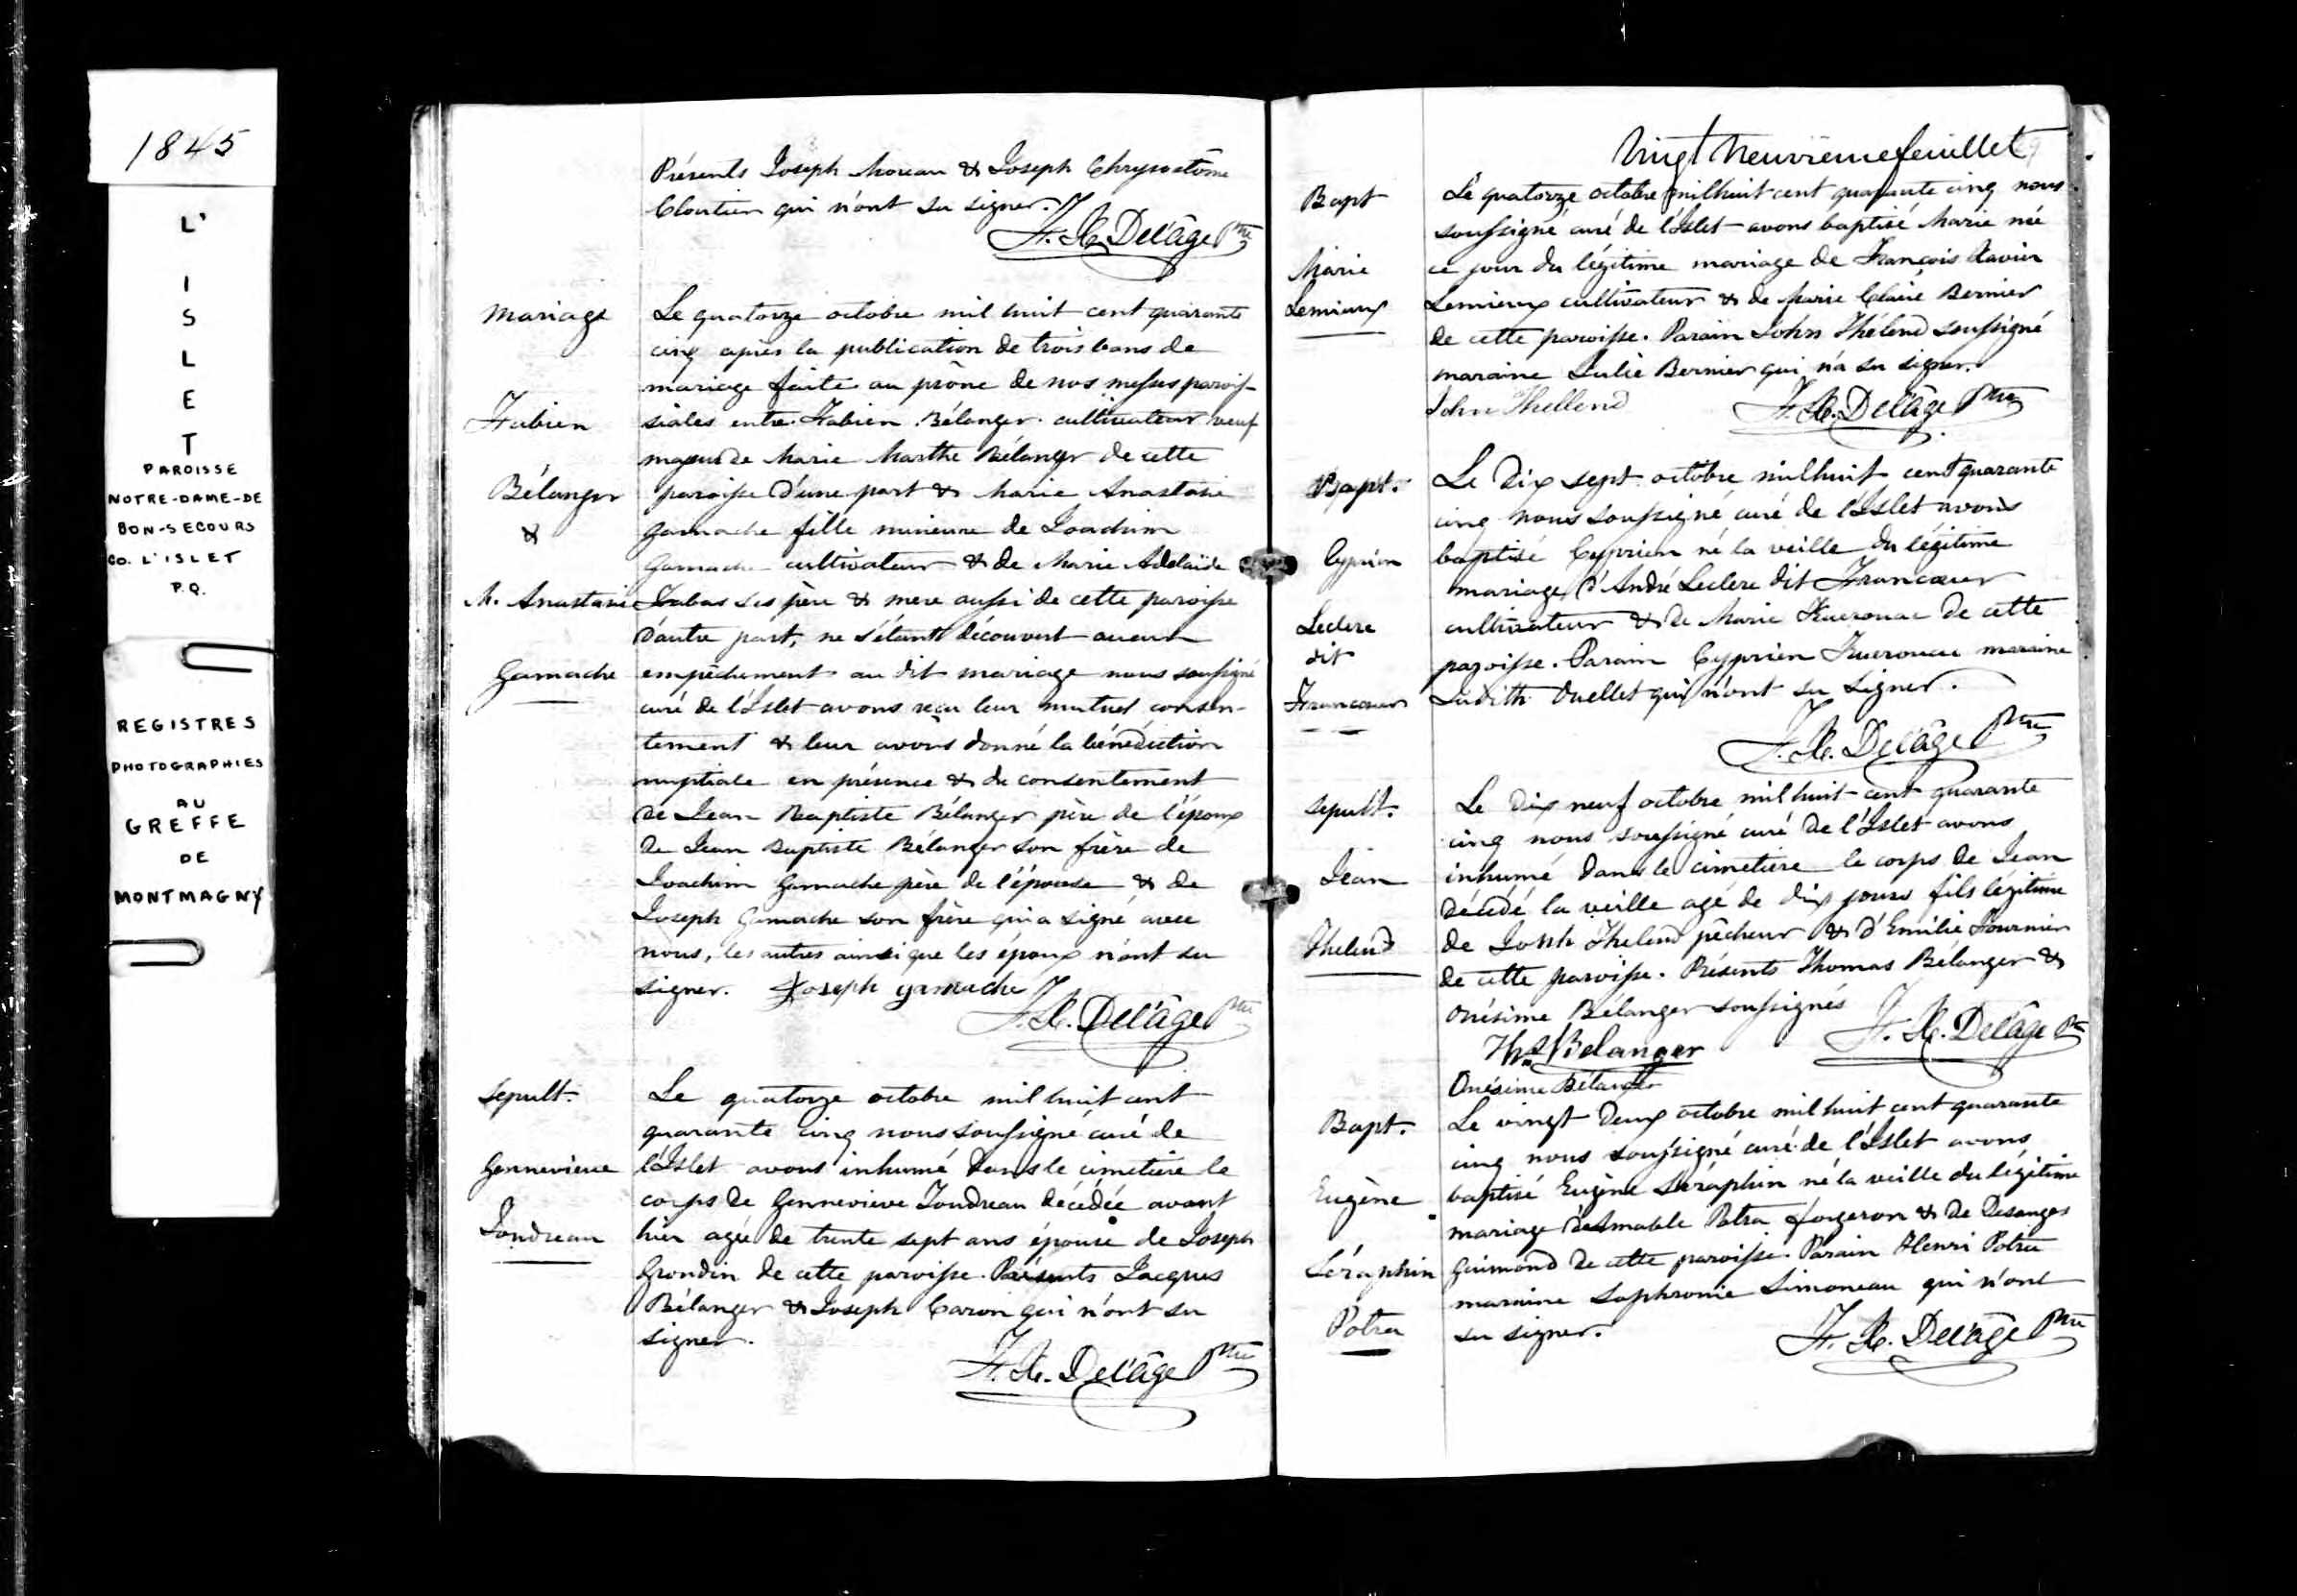 1845
L'
I
S
L
E
T
PAROISSE
NOTRE-DAME-DE
BON-SECOURS
CO. L'ISLET
P.Q.
REGISTRES
PHOTOGRAPHIES
AU
GREFFE
DE
MONTMAGNY
Présents Joseph Moreau & Joseph Chrysostôme
Cloutier qui n'ont su signer.
F. X. Delâge Ptre
Mariage
Fabien
Bélanger
&
M. Anastasie
Gamache
Le quatorze octobre mil huit cent quarante
cinq après la publication de trois bans de
mariage faite au prône de nos messes parois-
siales entre Fabien Bélanger cultivateur veuf
majeur de Marie Marthe Bélanger de cette
paroisse d'une part & Marie Anastasie
Gamache fille mineure de Joachim
Gamache cultivateur & de Marie Adelaïde
ses père & mere aussi de cette paroisse
d'autre part, ne s'étant découvert aucun
empêchement au dit mariage nous soussigné
curé de l'Islet avons reçu leur mutuel consen-
tement & leur avons donné la bénédiction
nuptiale en présence & du consentement
de Jean Baptiste Bélanger père de l'époux
de Jean Baptiste Bélanger son frère de
Joachim Gamache père de l'épouse & de
Joseph Gamache son frère qui a signé avec
nous, les autres ainsi que les époux n'ont su
signer. Joseph gamache
F. X. Delâge Ptre
Sepult.
Gennevieve
Jondreau
Le quatorze octobre mil huit cent
quarante cinq nous soussigné curé de
l'Islet avons inhumé dans le cimetière le
corps de Gennevieve Jondreau décédée avant
hier agée de trente sept ans épouse de Joseph
Grondin de cette paroisse. Présents Jacques
Bélanger & Joseph Caron qui n'ont su
signer.
F. X. Delâge Ptre
Vingt neuvième feuillet
Bapt
Marie
Lemieux
Le quatorze octobre mil huit cent quarante cinq nous
soussigné curé de l'Islet avons baptisé Marie née
ce jour du légitime mariage de François Xavier
Lemieux cultivateur & de Marie Claire Bernier
de cette paroisse. Parain John Thélend soussigné
maraine Julie Bernier qui n'a su signer.
John Thellend F. X. Delâge Ptre
Bapt.
Cyprien
Leclerc
dit
Francoeur
Le dix sept octobre mil huit cent quarante
cinq nous soussigné curé de l'Islet avons
baptisé Cyprien né la veille du légitime
mariage d'André Leclerc dit Francoeur
cultivateur & de Marie Kuerouac de cette
paroisse. Parain Cyprien Kuerouac maraine
Judith Ouellet qui n'ont su signer.
F. X. Delâge Ptre
Sepult.
Jean
Thelend
Le dix neuf octobre mil huit cent quarante
cinq nous soussigné curé de l'Islet avons
inhumé dans le cimetière le corps de Jean
décédé la veille agé de dix jours fils légitime
de Thelend pêcheur & d'Emilie Fournier
de cette paroisse. Présents Thomas Bélanger &
Onésime Bélanger soussignés
F. X. Delâge Ptre
Ths Belanger
Onésime Bélanger
Bapt.
Eugène
Séraphin
Potra
Le vingt deux octobre mil huit cent quarante
cinq nous soussigné curé de l'Islet avons
baptisé Eugène Séraphin né la veille du légitime
mariage d'Amable Potra forgeron & de Desanges
Guimond de cette paroisse. Parain Henri Potra
maraine Sophronie Simoneau qui n'ont
su signer.
F. X. Delâge Ptre